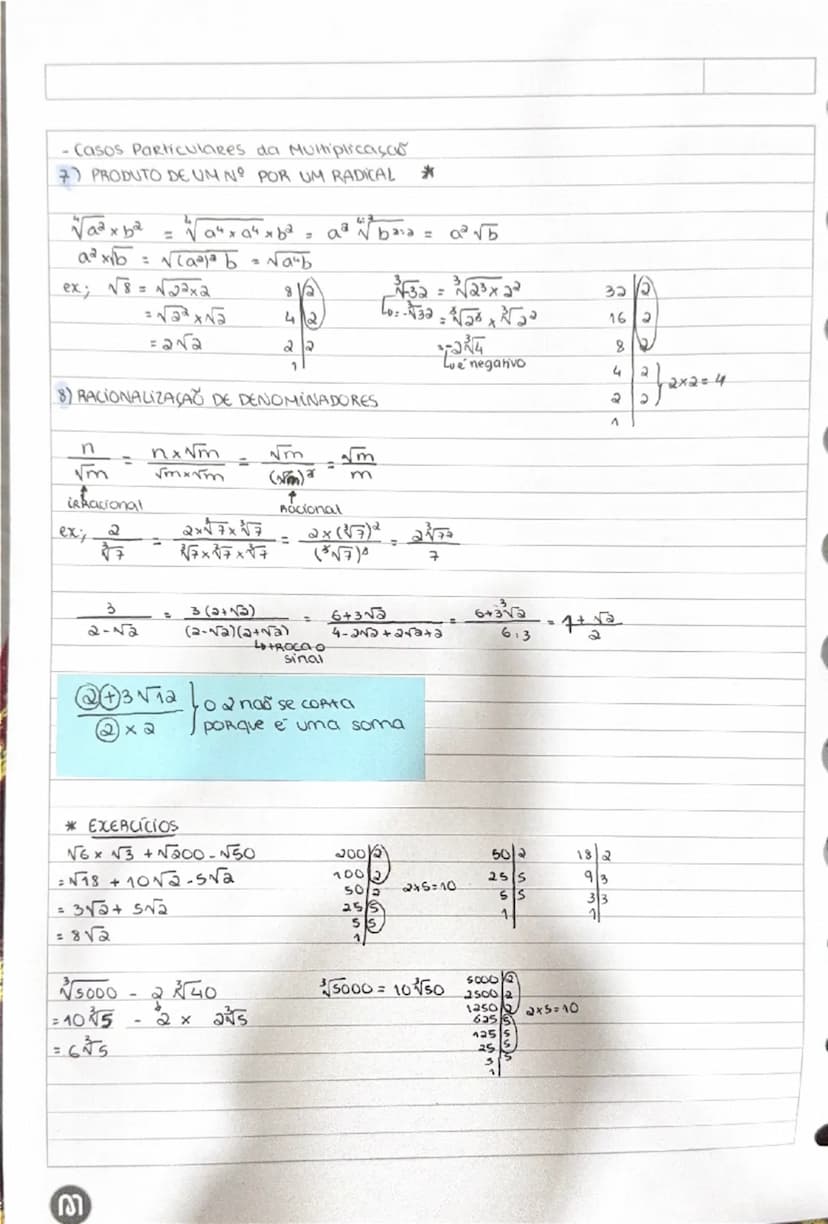 - Casos Particulares da Multiplicação
7) PRODUTO DE UM Nº POR UM RADICAL *
⁴√a² × b² = ⁴√a⁴ × a⁴ × b² = a² ⁴:²√b²:² = a² √b
a² × √b = √(a²)² b = √a⁴b
ex; √8 = √2² × 2
= √2² × √2
= 2√2
8 | 2
4 | 2
2 | 2
1
³√-32 = ³√2³ × 2²
↳ = -³√32 = ³√2³ × ³√2²
= -2 ³√4
↳ é negativo
32 | 2
16 | 2
8 | 2
4 | 2
2 | 2
1
} 2×2 = 4
8) RACIONALIZAÇÃO DE DENOMINADORES
n/√m = n × √m/√m × √m = √m/(√m)² = √m/m
irracional
racional
ex; 2/³√7 = 2 × ³√7 × ³√7/³√7 × ³√7 × ³√7 = 2 × (³√7)²/(³√7)³ = 2 ³√7²/7
3/2-√2 = 3(2+√2)/(2-√2)(2+√2) = 6+3√2/4-2√2+2√2+2 = 6+3√2/6:3 = 1+√2/2
↳ troca o
sinal
②+3√12/② × 2 } o 2 não se corta
porque é uma soma
* EXERCÍCIOS
√6 × √3 + √200 - √50
= √18 + 10√2 - 5√2
= 3√2 + 5√2
= 8√2
200 | 2
100 | 2
50 | 2
25 | 5
5 | 5
1
2×5=10
50 | 2
25 | 5
5 | 5
1
18 | 2
9 | 3
3 | 3
1
³√5000 - 2 ³√40
= 10 ³√5 - 2 × 2 ³√5
= 6 ³√5
³√5000 = 10 ³√50
5000 | 2
2500 | 2
1250 | 2
625 | 5
125 | 5
25 | 5
5 | 5
1
2×5=10